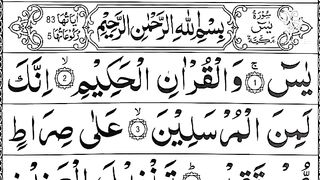 سُورَةُ يٰسٓ مَكِّيَّةٌ
بِسْمِ اللّٰهِ الرَّحْمٰنِ الرَّحِيْمِ
اٰيَاتُهَا 83
رُكُوْعَاتُهَا 5
يٰسٓ ۚ ﴿1﴾ وَالْقُرْاٰنِ الْحَكِيْمِ ۙ ﴿2﴾ اِنَّكَ
لَمِنَ الْمُرْسَلِيْنَ ۙ ﴿3﴾ عَلٰى صِرَاطٍ
مُّسْتَقِيْمٍ ؕ ﴿4﴾ تَنْزِيْلَ الْعَزِيْزِ